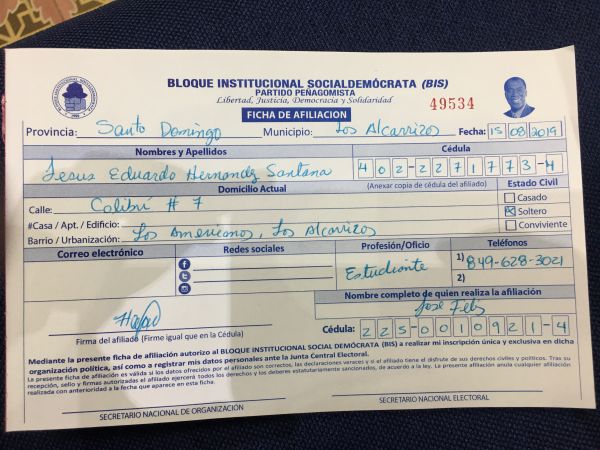 BLOQUE INSTITUCIONAL SOCIALDEMÓCRATA (BIS)
PARTIDO PEÑAGOMISTA
Libertad, Justicia, Democracia y Solidaridad
49534
FICHA DE AFILIACION
Provincia: Santo Domingo Municipio: Los Alcarrizos Fecha: 15 08 2019
Nombres y Apellidos Cédula
Jesus Eduardo Hernandz Santana 402-2271773-4
Domicilio Actual (Anexar copia de cédula del afiliado) Estado Civil
Calle: Colibrí # 7 Casado
#Casa / Apt. / Edificio: Soltero
Barrio / Urbanización: Los Americanos, Los Alcarrizos Conviviente
Correo electrónico Redes sociales Profesión/Oficio Teléfonos
Estudiante 1) 849-628-3021
2)
Nombre completo de quien realiza la afiliación
José Felis
Firma del afiliado (Firme igual que en la Cédula) Cédula: 225-0010921-4
Mediante la presente ficha de afiliación autorizo al BLOQUE INSTITUCIONAL SOCIAL DEMÓCRATA (BIS) a realizar mi inscripción única y exclusiva en dicha
organización política, así como a registrar mis datos personales ante la Junta Central Electoral.
La presente ficha de afiliación es válida si los datos ofrecidos por el afiliado son correctos, las declaraciones veraces y si el afiliado tiene el disfrute de sus derechos civiles y políticos. Tras su
recepción, sello y firmas autorizadas el afiliado ejercerá todos los derechos y los deberes estatutariamente sancionados, de acuerdo a la ley. La presente afiliación anula cualquier afiliación
realizada con anterioridad a la fecha que aparece en esta ficha.
SECRETARIO NACIONAL DE ORGANIZACIÓN SECRETARIO NACIONAL ELECTORAL